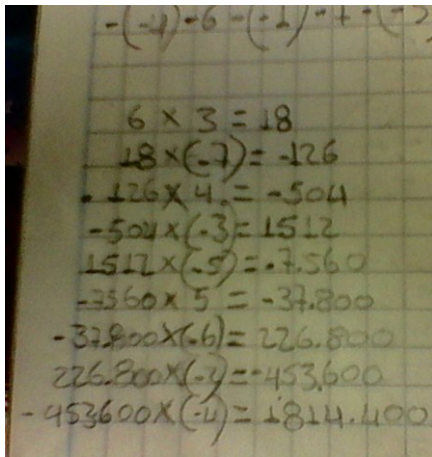 -(-4)-6-(-1)-7-(-3
6 × 3 = 18
18×(-7)= -126
-126×4.= -504
-504×(-3)=1512
1512×(-5)=-7.560
-7560×5 = -37.800
-37.800×(-6)= 226.800
226.800×(-2)=-453.600
-453600×(-4)= 1814.400